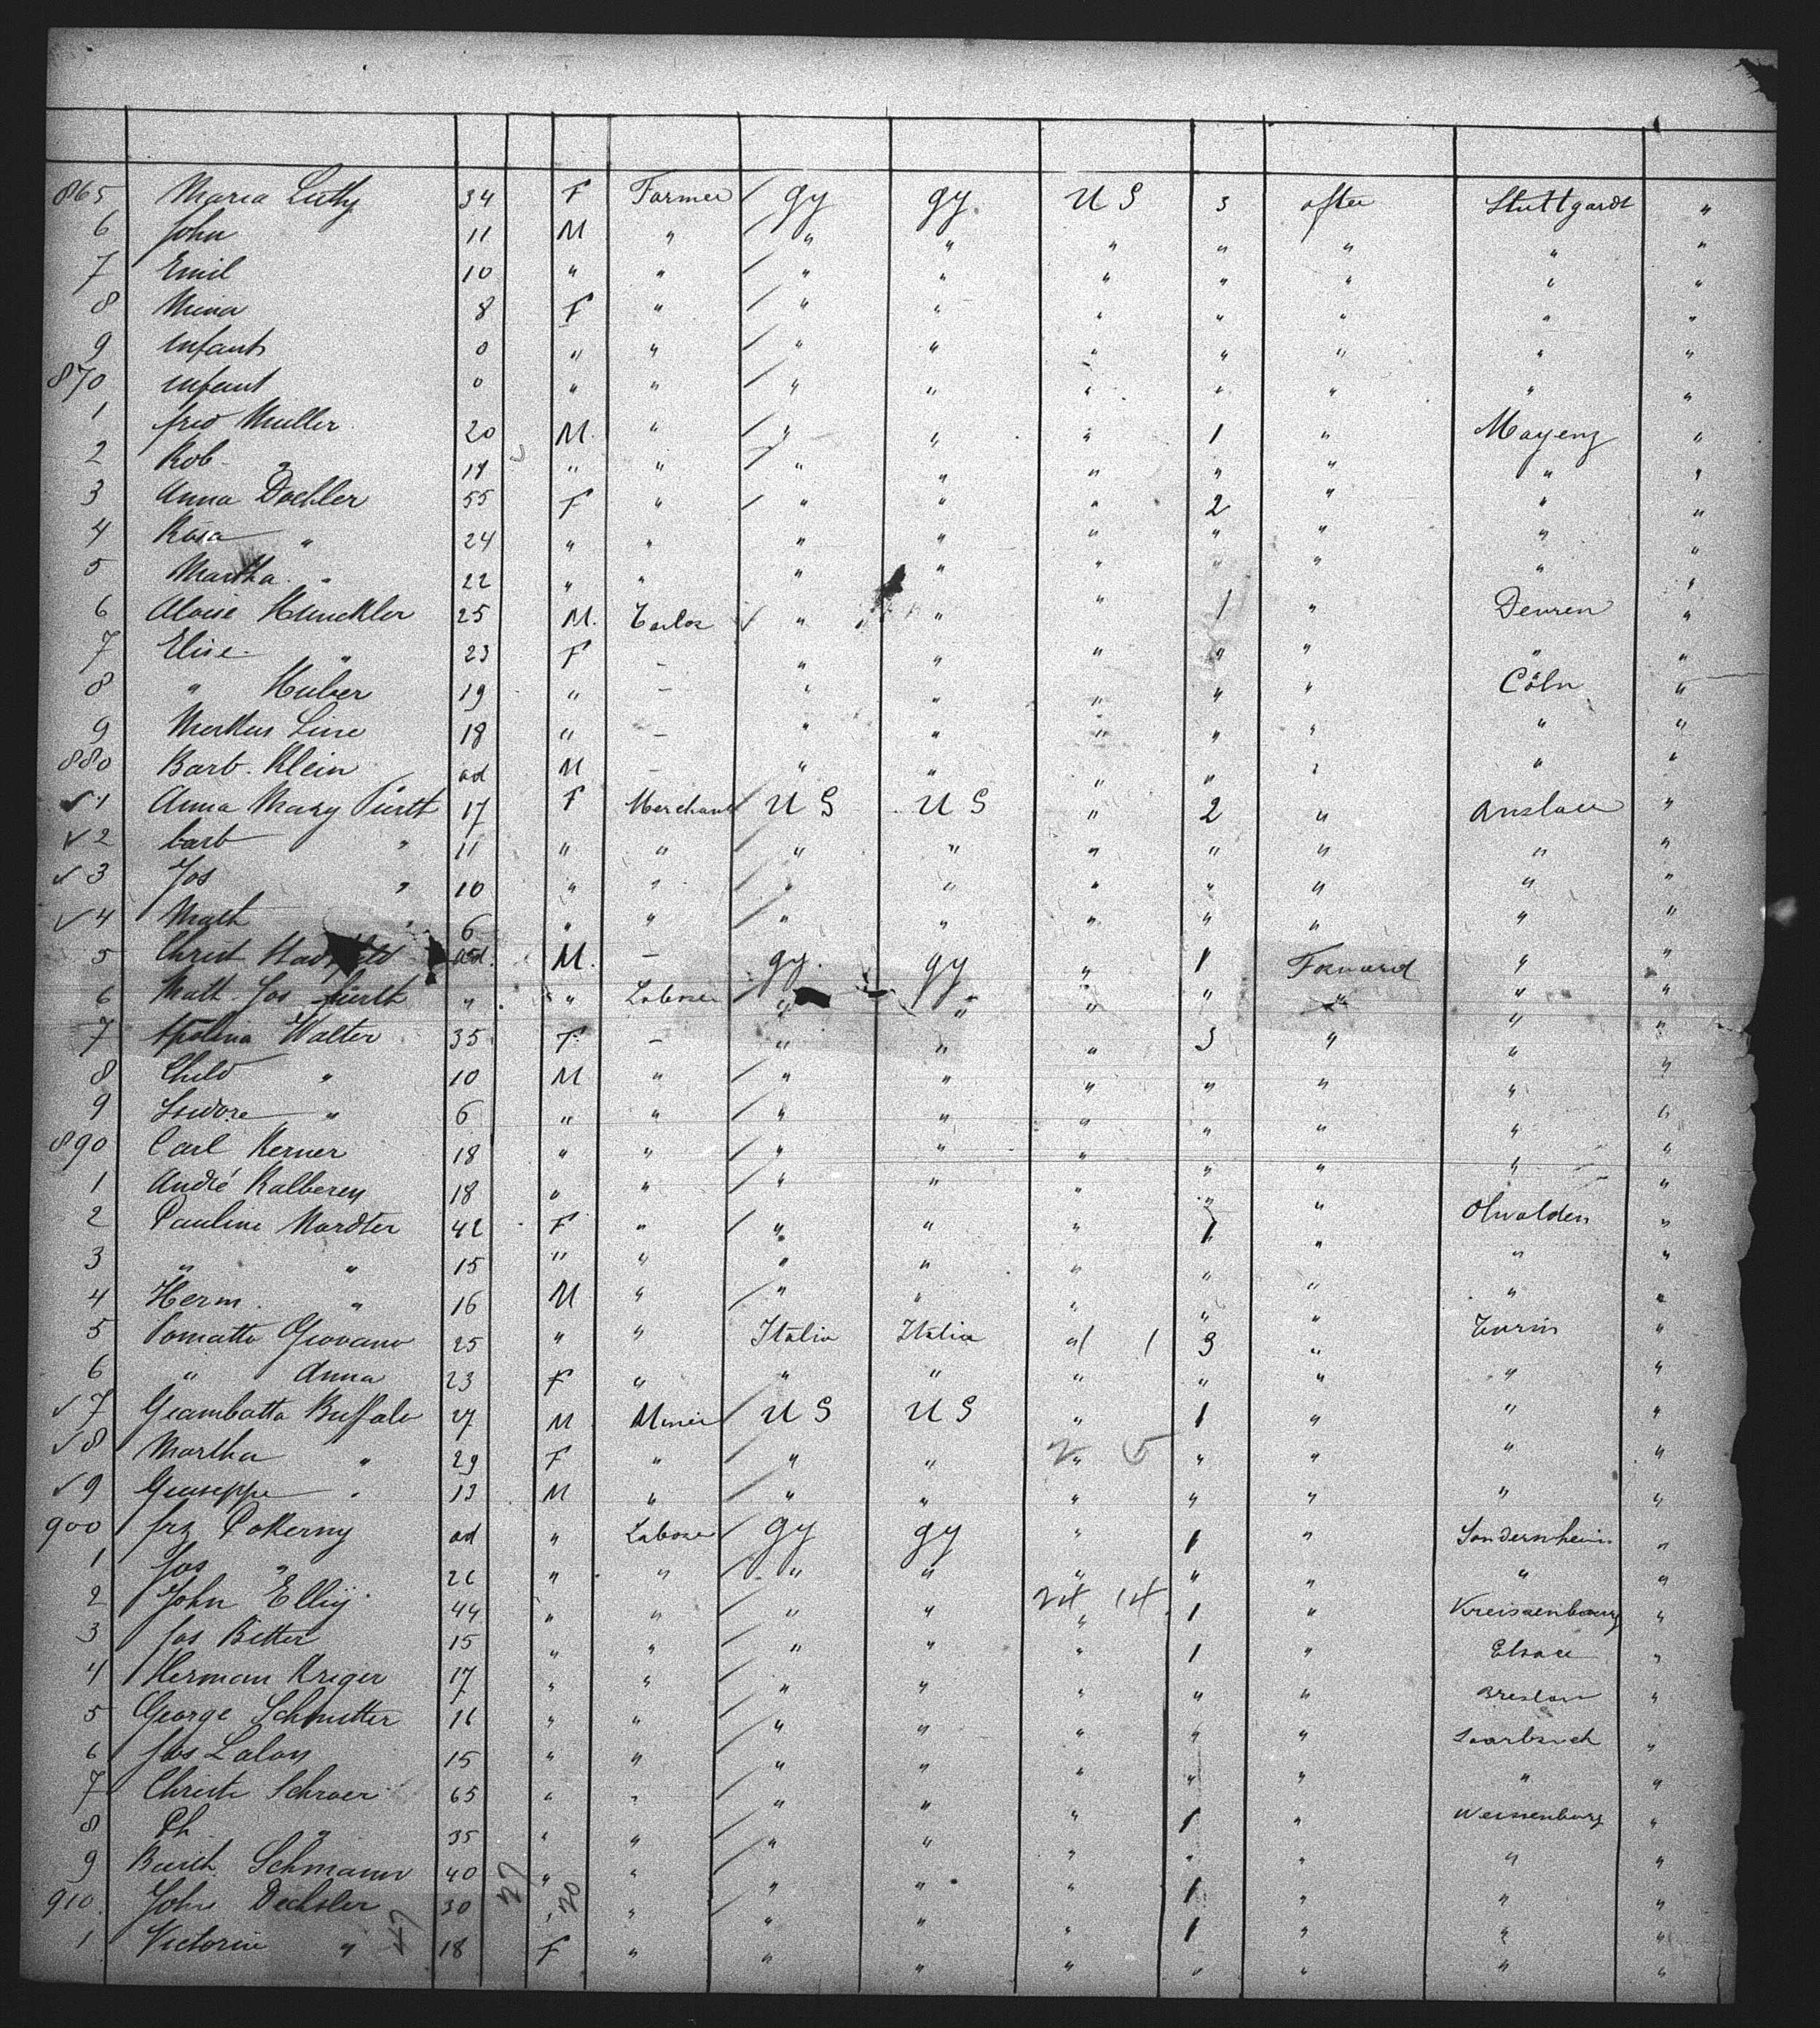 865 Maria Luthy 34 F Farmer gy gy U S 3 after Stuttgardt "
6 John 11 M " " " " " " " "
7 Emil 10 " " " " " " " " "
8 Mina 8 F " " " " " " " "
9 Infant 0 " " " " " " " " "
870 Infant 0 " " " " " " " " "
1 fred Muller 20 M. " " " " 1 " Mayenz "
2 Rob. " 14 " " " " " " " " "
3 Anna Doehler 55 F " " " " 2 " " "
4 Rosa " 24 " " " " " " " " "
5 Martha " 22 " " " " " " " " "
6 Aloise Hunckler 25 M. " " " 1 " Deuren "
7 Elise " 23 F - " " " " " " "
8 " Huber 19 " - " " " " " Cöln "
9 Markus Line 18 " - " " " " " " "
880 Barb. Klein ad M - " " " " " " "
1 Anna Mary Fürth 17 F Merchant U S U S " 2 " "
2 barb " 11 " " " " " " " " "
3 Jos " 10 " " " " " " " " "
4 Math " 6 " " " " " " " " "
5 Christ ad. M. - gy. gy " 1 Forward " "
6 Math. Jos fürth " " Laborer " " " " " " "
7 Walter 35 F - " " " 3 " " "
8 Child " 10 M " " " " " " " "
9 Isidore " 6 " " " " " " " " "
890 Carl Kerner 18 " " " " " " " " "
1 André Kalberey 18 " " " " " " " "
2 Pauline Mordter 42 F " " " " 1 " "
3 " " 15 " " " " " " " " "
4 Herm. " 16 M " " " " " " " "
5 Pomatto Giovano 25 " " Italia Italia " 1 3 " Turin "
6 " Anna 23 F " " " " " " " "
7 Giambatta Buffalo 27 M Miner U S U S " 1 " " "
8 Martha " 29 F " " " " " " " "
9 Giuseppe " 13 M " " " " " " " "
900 frz Pokerny ad " Laborer gy gy " 1 " Sondernheim "
1 Jos " 26 " " " " " " " " "
2 John Ellij 44 " " " " " 1 " "
3 Jos Better 15 " " " " " 1 " Elsace "
4 Herman Kriger 17 " " " " " " " Breslau "
5 George Schmitter 16 " " " " " " " Saarbruch "
6 Jos Lalon 15 " " " " " " " " "
7 Christe Schroer 65 " " " " " 1 " Weissenburg "
8 Ph. " 35 " " " " " " " " "
9 Schmann 40 " " " " " 1 " " "
910. John Dechsler 30 " " " " " 1 " " "
1 Victorine " 18 F " " " " " " " "